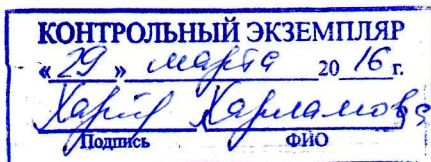 КОНТРОЛЬНЫЙ ЭКЗЕМПЛЯР
« 29 » марта 20 16 г.
Харламова
Подпись ФИО